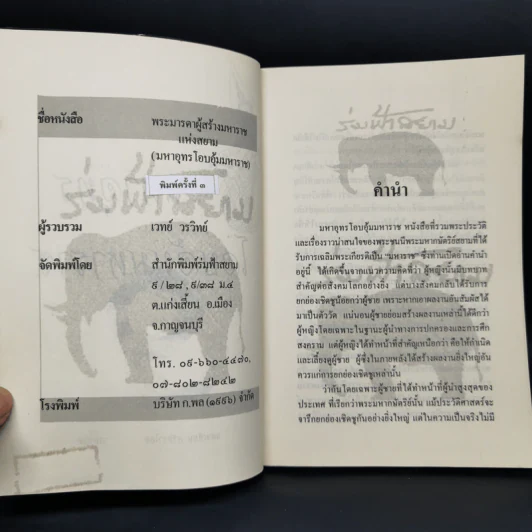 ชื่อหนังสือ
พระมารดาผู้สร้างมหาราช
แห่งสยาม
(มหาอุทรโอบอุ้มมหาราช)
พิมพ์ครั้งที่ ๓
ผู้รวบรวม
เวทย์ วรวิทย์
จัดพิมพ์โดย
สำนักพิมพ์ร่มฟ้าสยาม
๙/๒๘ , ๙/๓๘ ม.๔
ต.แก่งเสี้ยน อ.เมือง
จ.กาญจนบุรี
โทร. ๐๑-๖๖๐-๔๔๗๐,
๐๗-๘๐๒-๘๒๔๒
โรงพิมพ์
บริษัท ก.พล (1996) จำกัด
ร่มฟ้าสยาม
คำนำ
มหาอุทรโอบอุ้มมหาราช หนังสือที่รวมพระประวัติ
และเรื่องราวน่าสนใจของพระชนนีพระมหากษัตริย์สยามที่ได้
รับการเฉลิมพระเกียรติเป็น "มหาราช" ซึ่งท่านเปิดอ่านคำนำ
อยู่นี้ ได้เกิดขึ้นจากแนวความคิดที่ว่า ผู้หญิงนั้นมีบทบาท
สำคัญต่อสังคมโลกอย่างยิ่ง แต่บางสังคมกลับได้รับการ
ยกย่องเชิดชูน้อยกว่าผู้ชาย เพราะหากเอาผลงานอันสัมผัสได้
มาเป็นตัววัด แน่นอนผู้ชายย่อมสร้างผลงานเหล่านี้ได้ดีกว่า
ผู้หญิงโดยเฉพาะในฐานะผู้นำทางการปกครองและการศึก
สงคราม แต่ผู้หญิงได้ทำหน้าที่สำคัญเหนือกว่า คือให้กำเนิด
และเลี้ยงดูผู้ชาย ผู้ซึ่งในภายหลังได้สร้างผลงานยิ่งใหญ่อัน
ควรแก่การยกย่องเชิดชูเหล่านั้น
ว่ากันโดยเฉพาะผู้ชายที่ได้ทำหน้าที่ผู้นำสูงสุดของ
ประเทศ ที่เรียกว่าพระมหากษัตริย์นั้น แม้ประวัติศาสตร์จะ
จารึกยกย่องเชิดชูกันอย่างยิ่งใหญ่ แต่ในความเป็นจริงไม่มี